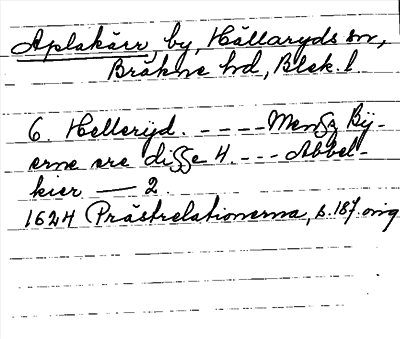 Aplakärr, by, Hällaryds sn,
Bräkne hd, Blek. l.
6. Helleryd. ---- Mens Bÿ-
erne ere disse 4. --- Abbel-
kier — 2.
1624 Prästrelationerna, s. 187. orig